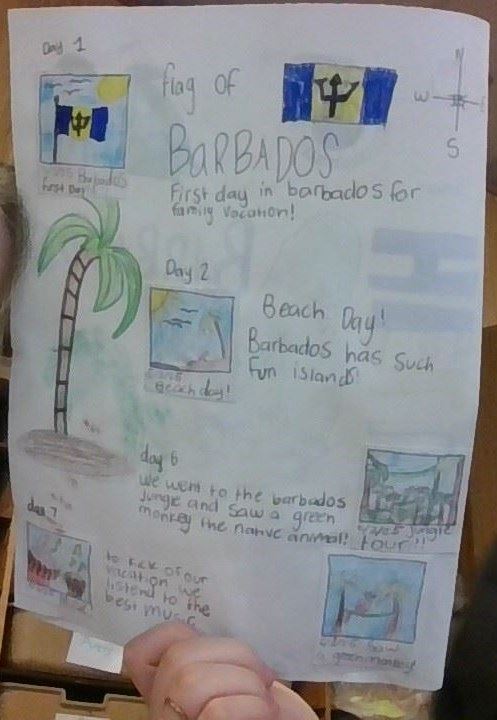 Day 1
flag of
BARBADOS
Barbados
first Day!
First day in barbados for
family vacation!
N
W
S
Day 2
Beach Day!
Barbados has such
fun islands!
Beach day!
day 6
we went to the barbados
jungle and saw a green
monkey the native animal!
Jungle
tour!!
day 7
to kick of our
vacation we
listend to the
best music
saw
a green monkey!